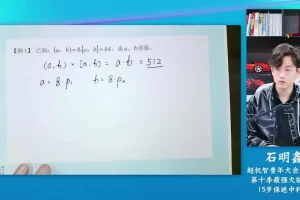 【例1】已知:(a,b)=8,[a,b]=64,求a、b的值.
(a,b)×[a,b]=a·b=512
a=8·p₁ b=8·p₂
石明鑫
超机智青年大会
第十季最强大脑
15岁保送中科